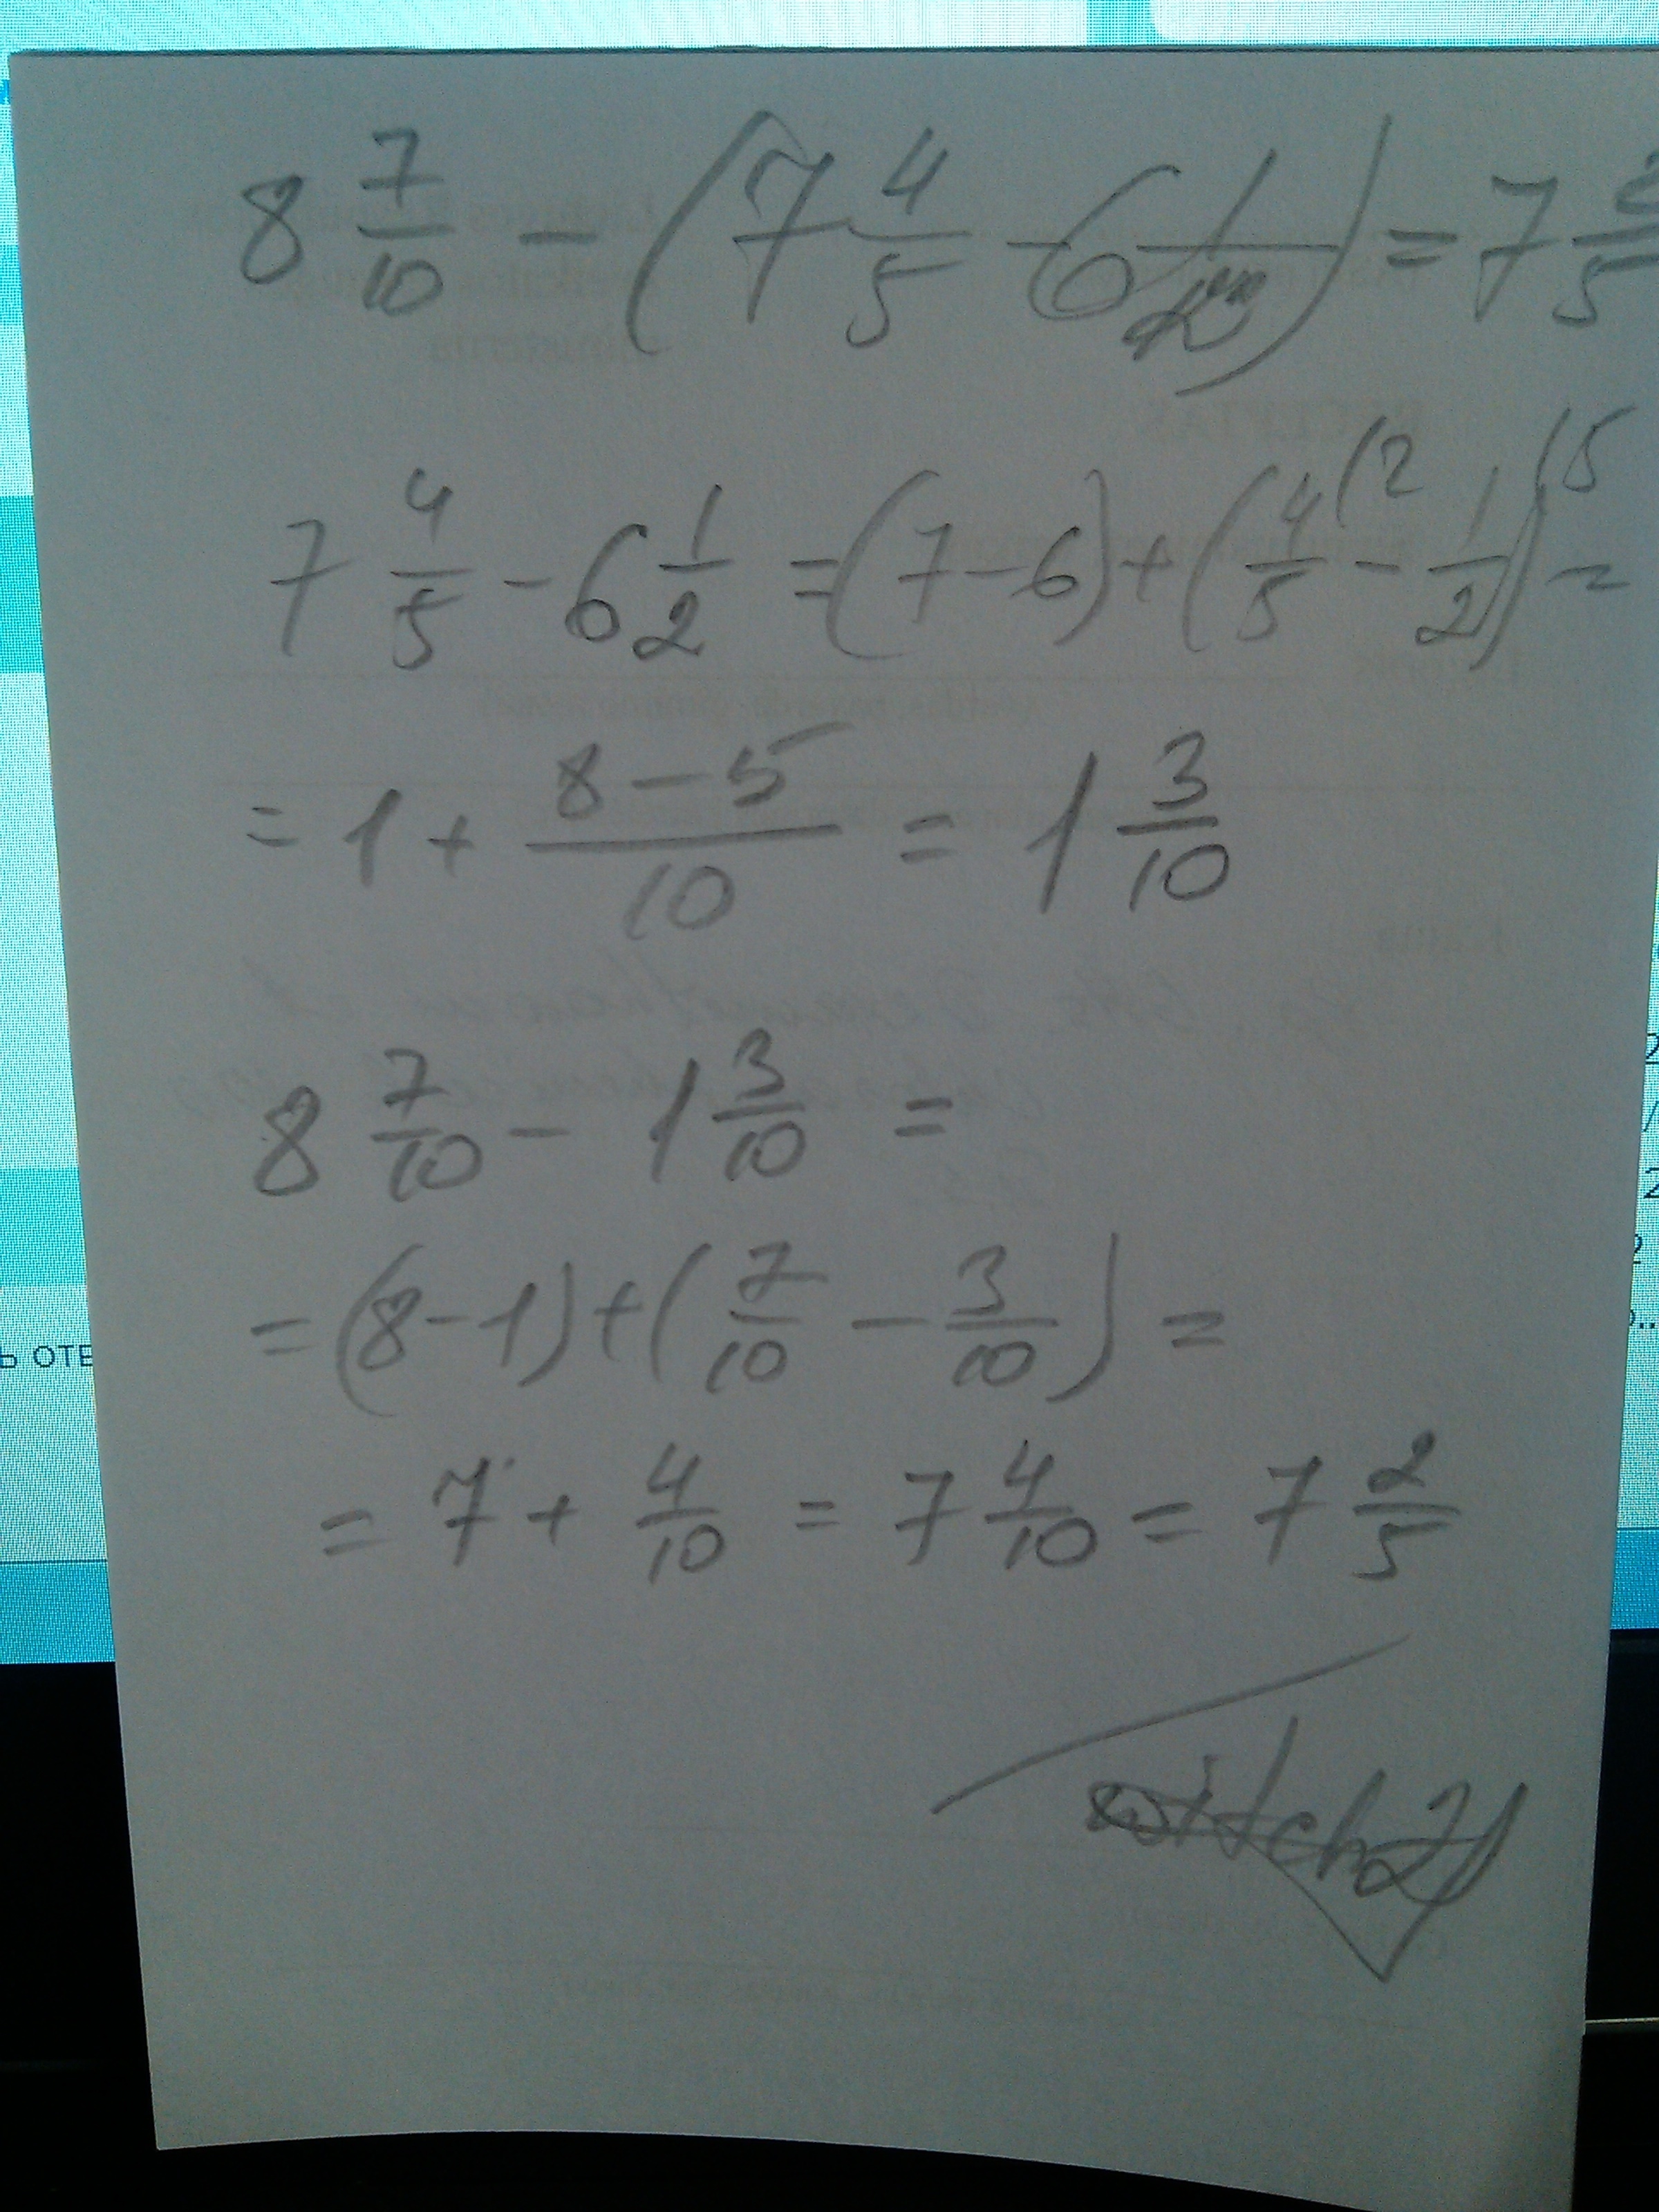 8 7/10 - (7 4/5 - 6 1/2) = 7 2/5
7 4/5 - 6 1/2 = (7 - 6) + (4/5 (2 - 1/2) (5 =
= 1 + (8 - 5)/10 = 1 3/10
8 7/10 - 1 3/10 =
= (8 - 1) + (7/10 - 3/10) =
= 7 + 4/10 = 7 4/10 = 7 2/5
ь отв